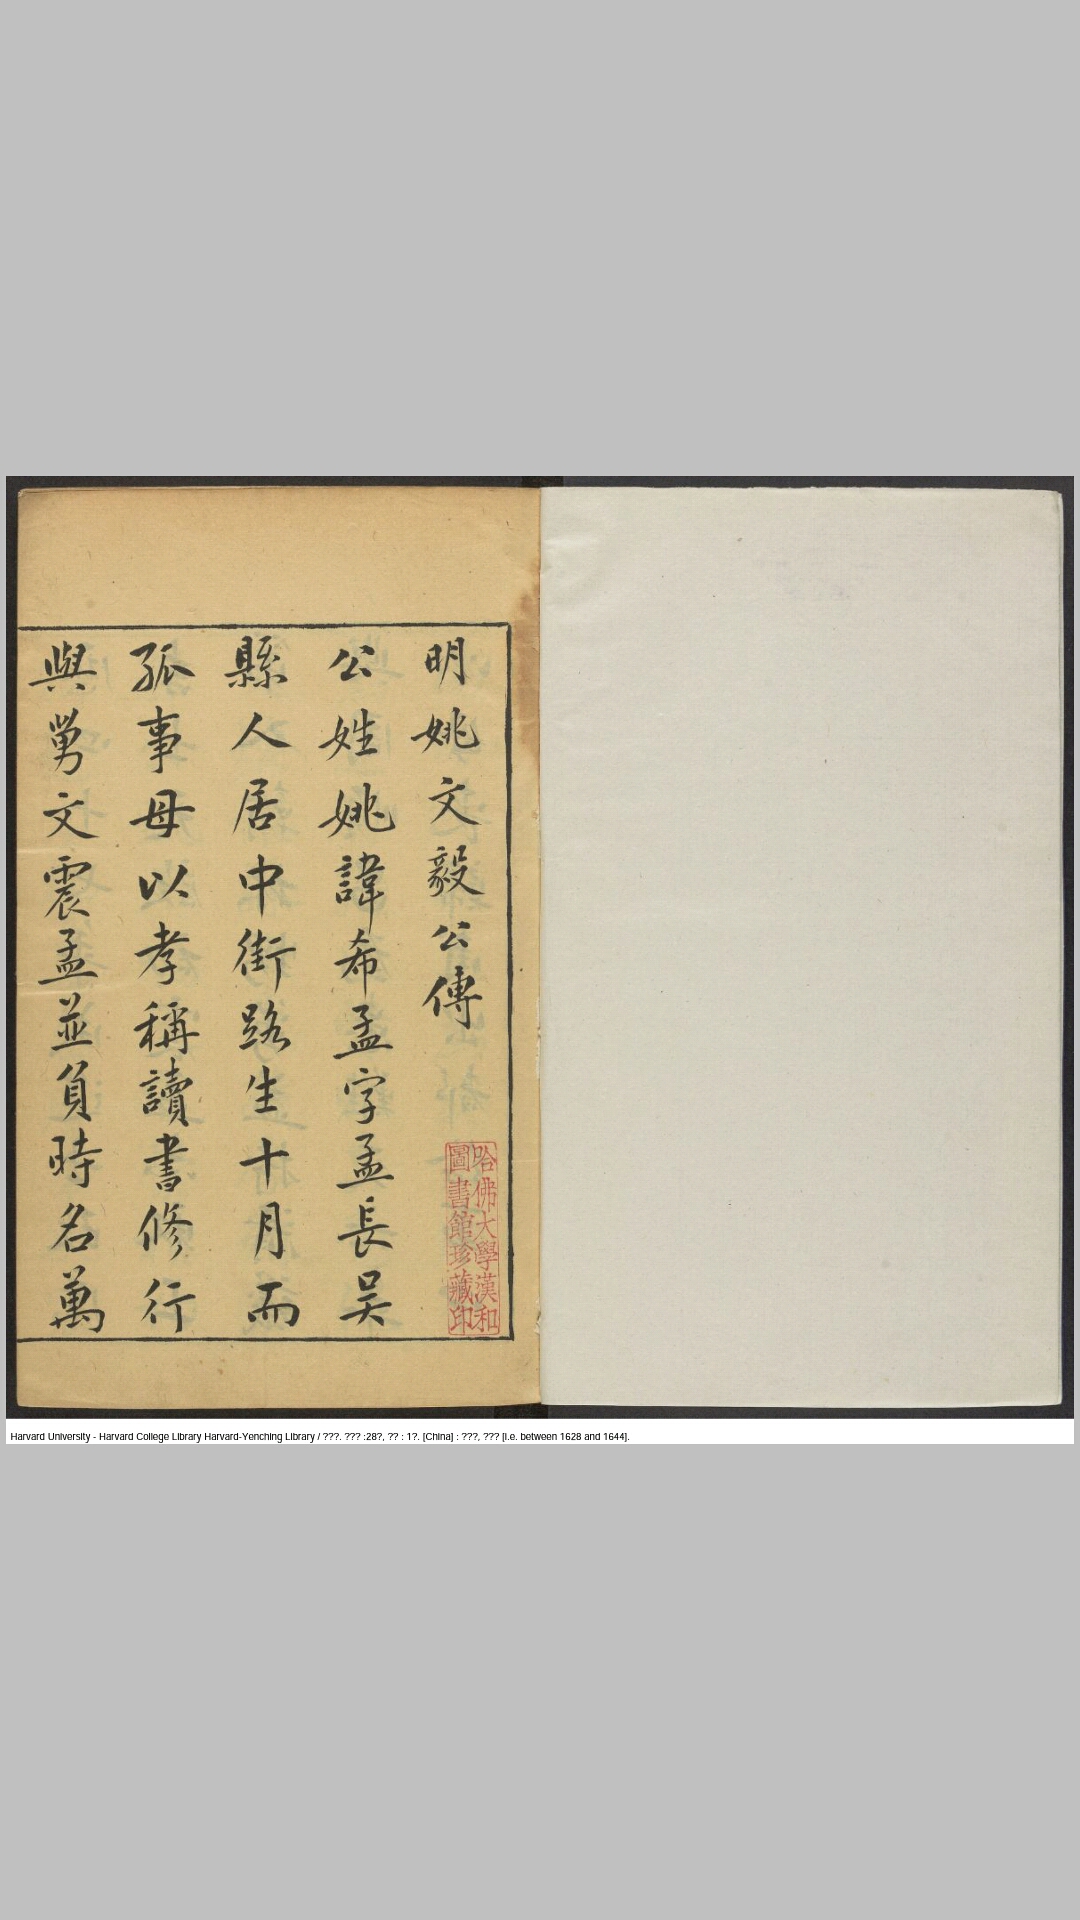 明姚文毅公傳
公姓姚諱希孟字孟長吴
縣人居中街路生十月而
孤事母以孝稱讀書修行
與舅文震孟並負時名萬
哈佛大學漢和
圖書館珍藏印
Harvard University - Harvard College Library Harvard-Yenching Library / ???. ??? :28?, ?? : 1?. [China] : ???, ??? [i.e. between 1628 and 1644].